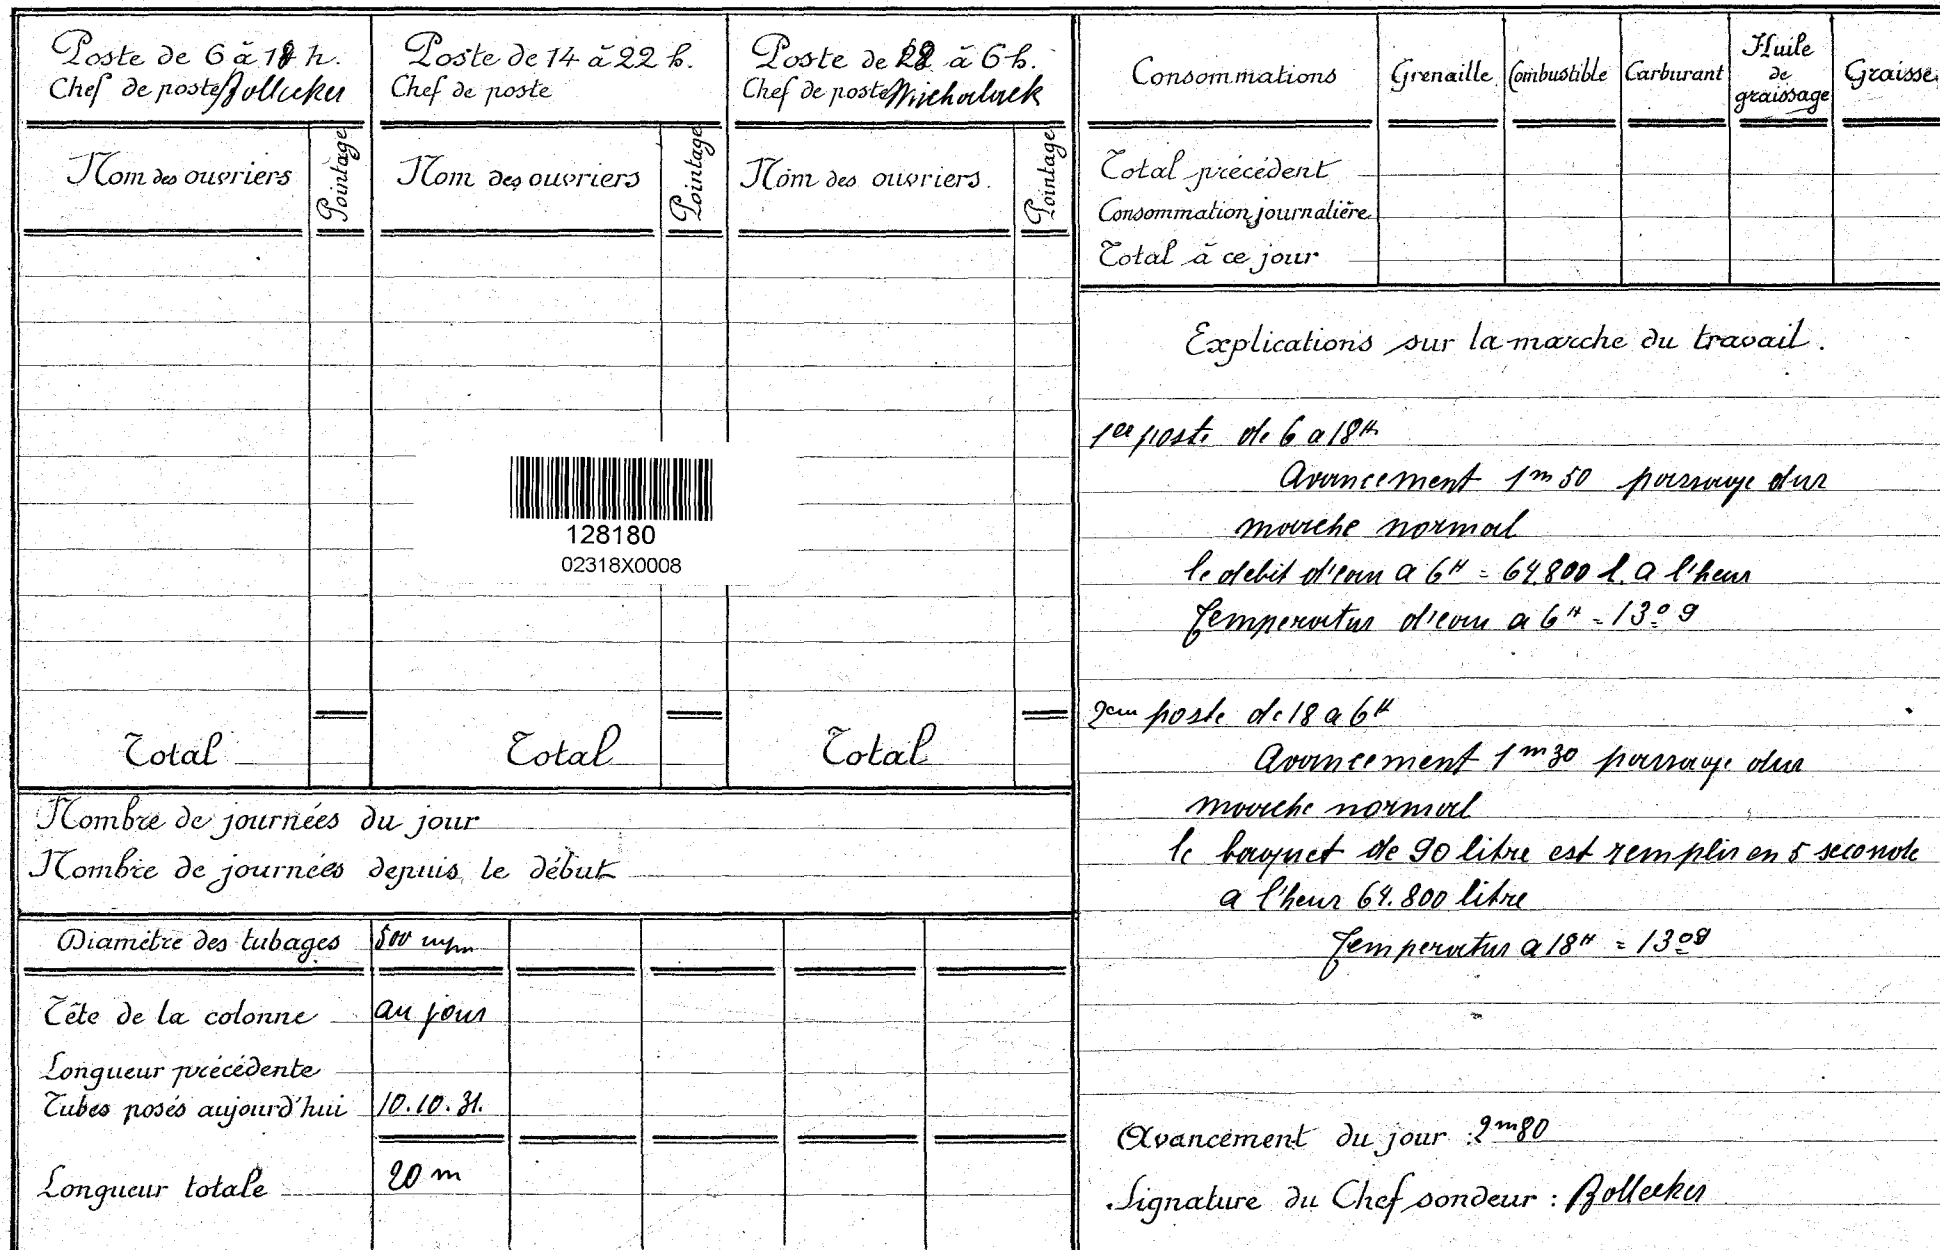 Poste de 6 à 18 h.
Chef de poste Bollecker
Nom des ouvriers
Pointage
Total
Poste de 14 à 22 h.
Chef de poste
Nom des ouvriers
Pointage
Total
Poste de 18 à 6 h.
Chef de poste
Nom des ouvriers.
Pointage
Total
128180
02318X0008
Nombre de journées du jour
Nombre de journées depuis le début
Diamètre des tubages 500 m/m
Tête de la colonne au jour
Longueur précédente
Tubes posés aujourd'hui 10.10.31.
Longueur totale 20 m
Consommations Grenaille Combustible Carburant Huile de graissage Graisse
Total précédent
Consommation journalière
Total à ce jour
Explications sur la marche du travail.
1er poste de 6 a 18H
Avancement 1m 50 passage dur
marche normal
le debit d'eau a 6H = 64.800 l. a l'heur
Temperatur d'eau a 6H = 13° 9
2em poste de 18 a 6H
Avancement 1m 30 passage dur
marche normal
le baquet de 90 litre est remplir en 5 seconde
a l'heur 64.800 litre
Temperatur a 18H = 13°9
Avancement du jour : 2m80
Signature du Chef sondeur : Bollecker